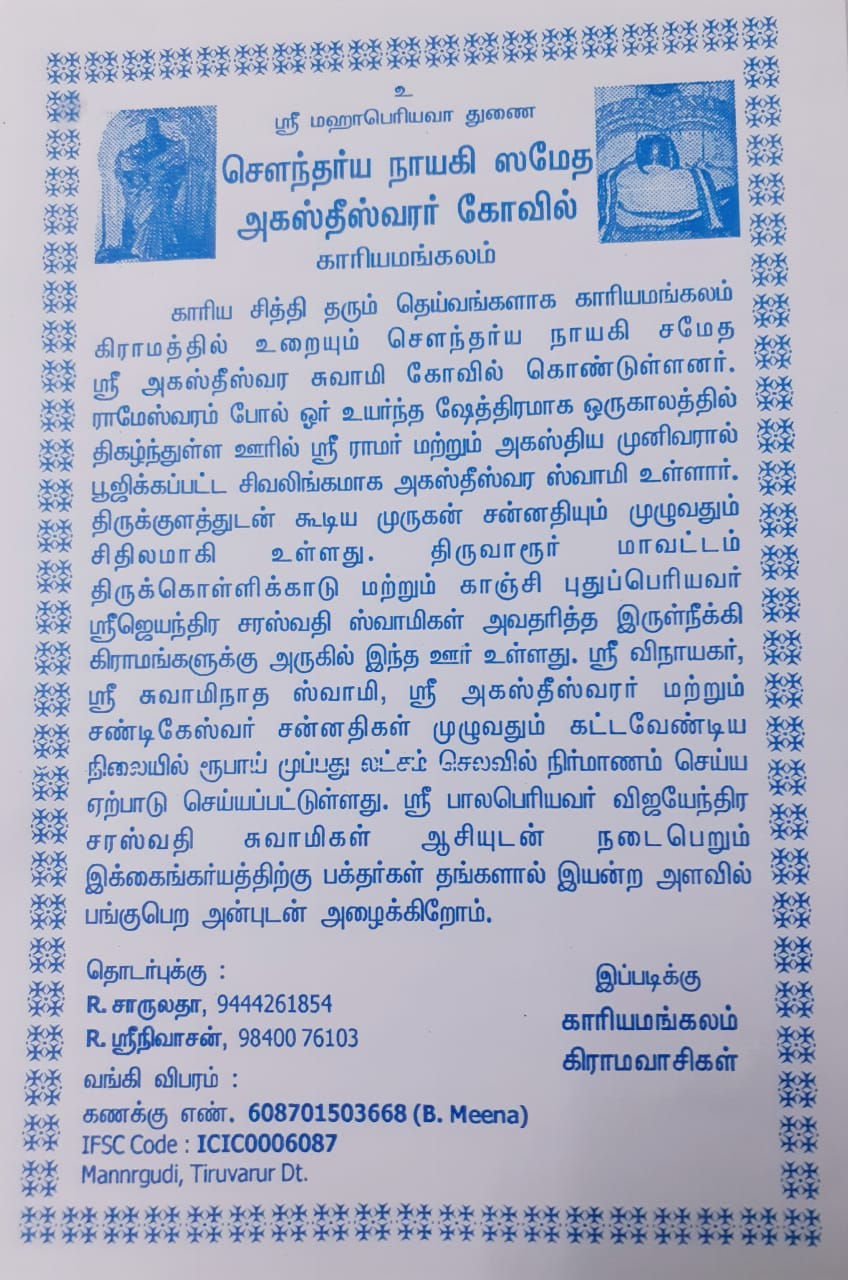 உ
ஸ்ரீ மஹாபெரியவா துணை
சௌந்தர்ய நாயகி ஸமேத
அகஸ்தீஸ்வரர் கோவில்
காரியமங்கலம்
காரிய சித்தி தரும் தெய்வங்களாக காரியமங்கலம்
கிராமத்தில் உறையும் சௌந்தர்ய நாயகி சமேத
ஸ்ரீ அகஸ்தீஸ்வர சுவாமி கோவில் கொண்டுள்ளனர்.
ராமேஸ்வரம் போல் ஓர் உயர்ந்த ஷேத்திரமாக ஒருகாலத்தில்
திகழ்ந்துள்ள ஊரில் ஸ்ரீ ராமர் மற்றும் அகஸ்திய முனிவரால்
பூஜிக்கப்பட்ட சிவலிங்கமாக அகஸ்தீஸ்வர ஸ்வாமி உள்ளார்.
திருக்குளத்துடன் கூடிய முருகன் சன்னதியும் முழுவதும்
சிதிலமாகி உள்ளது. திருவாரூர் மாவட்டம்
திருக்கொள்ளிக்காடு மற்றும் காஞ்சி புதுப்பெரியவர்
ஸ்ரீஜெயந்திர சரஸ்வதி ஸ்வாமிகள் அவதரித்த இருள்நீக்கி
கிராமங்களுக்கு அருகில் இந்த ஊர் உள்ளது. ஸ்ரீ விநாயகர்,
ஸ்ரீ சுவாமிநாத ஸ்வாமி, ஸ்ரீ அகஸ்தீஸ்வரர் மற்றும்
சண்டிகேஸ்வர் சன்னதிகள் முழுவதும் கட்டவேண்டிய
நிலையில் ரூபாய் முப்பது லட்சம் செலவில் நிர்மாணம் செய்ய
ஏற்பாடு செய்யப்பட்டுள்ளது. ஸ்ரீ பாலபெரியவர் விஜயேந்திர
சரஸ்வதி சுவாமிகள் ஆசியுடன் நடைபெறும்
இக்கைங்கர்யத்திற்கு பக்தர்கள் தங்களால் இயன்ற அளவில்
பங்குபெற அன்புடன் அழைக்கிறோம்.
தொடர்புக்கு :
R. சாருலதா, 9444261854
R. ஸ்ரீநிவாசன், 98400 76103
வங்கி விபரம் :
கணக்கு எண். 608701503668 (B. Meena)
IFSC Code : ICIC0006087
Mannrgudi, Tiruvarur Dt.
இப்படிக்கு
காரியமங்கலம்
கிராமவாசிகள்